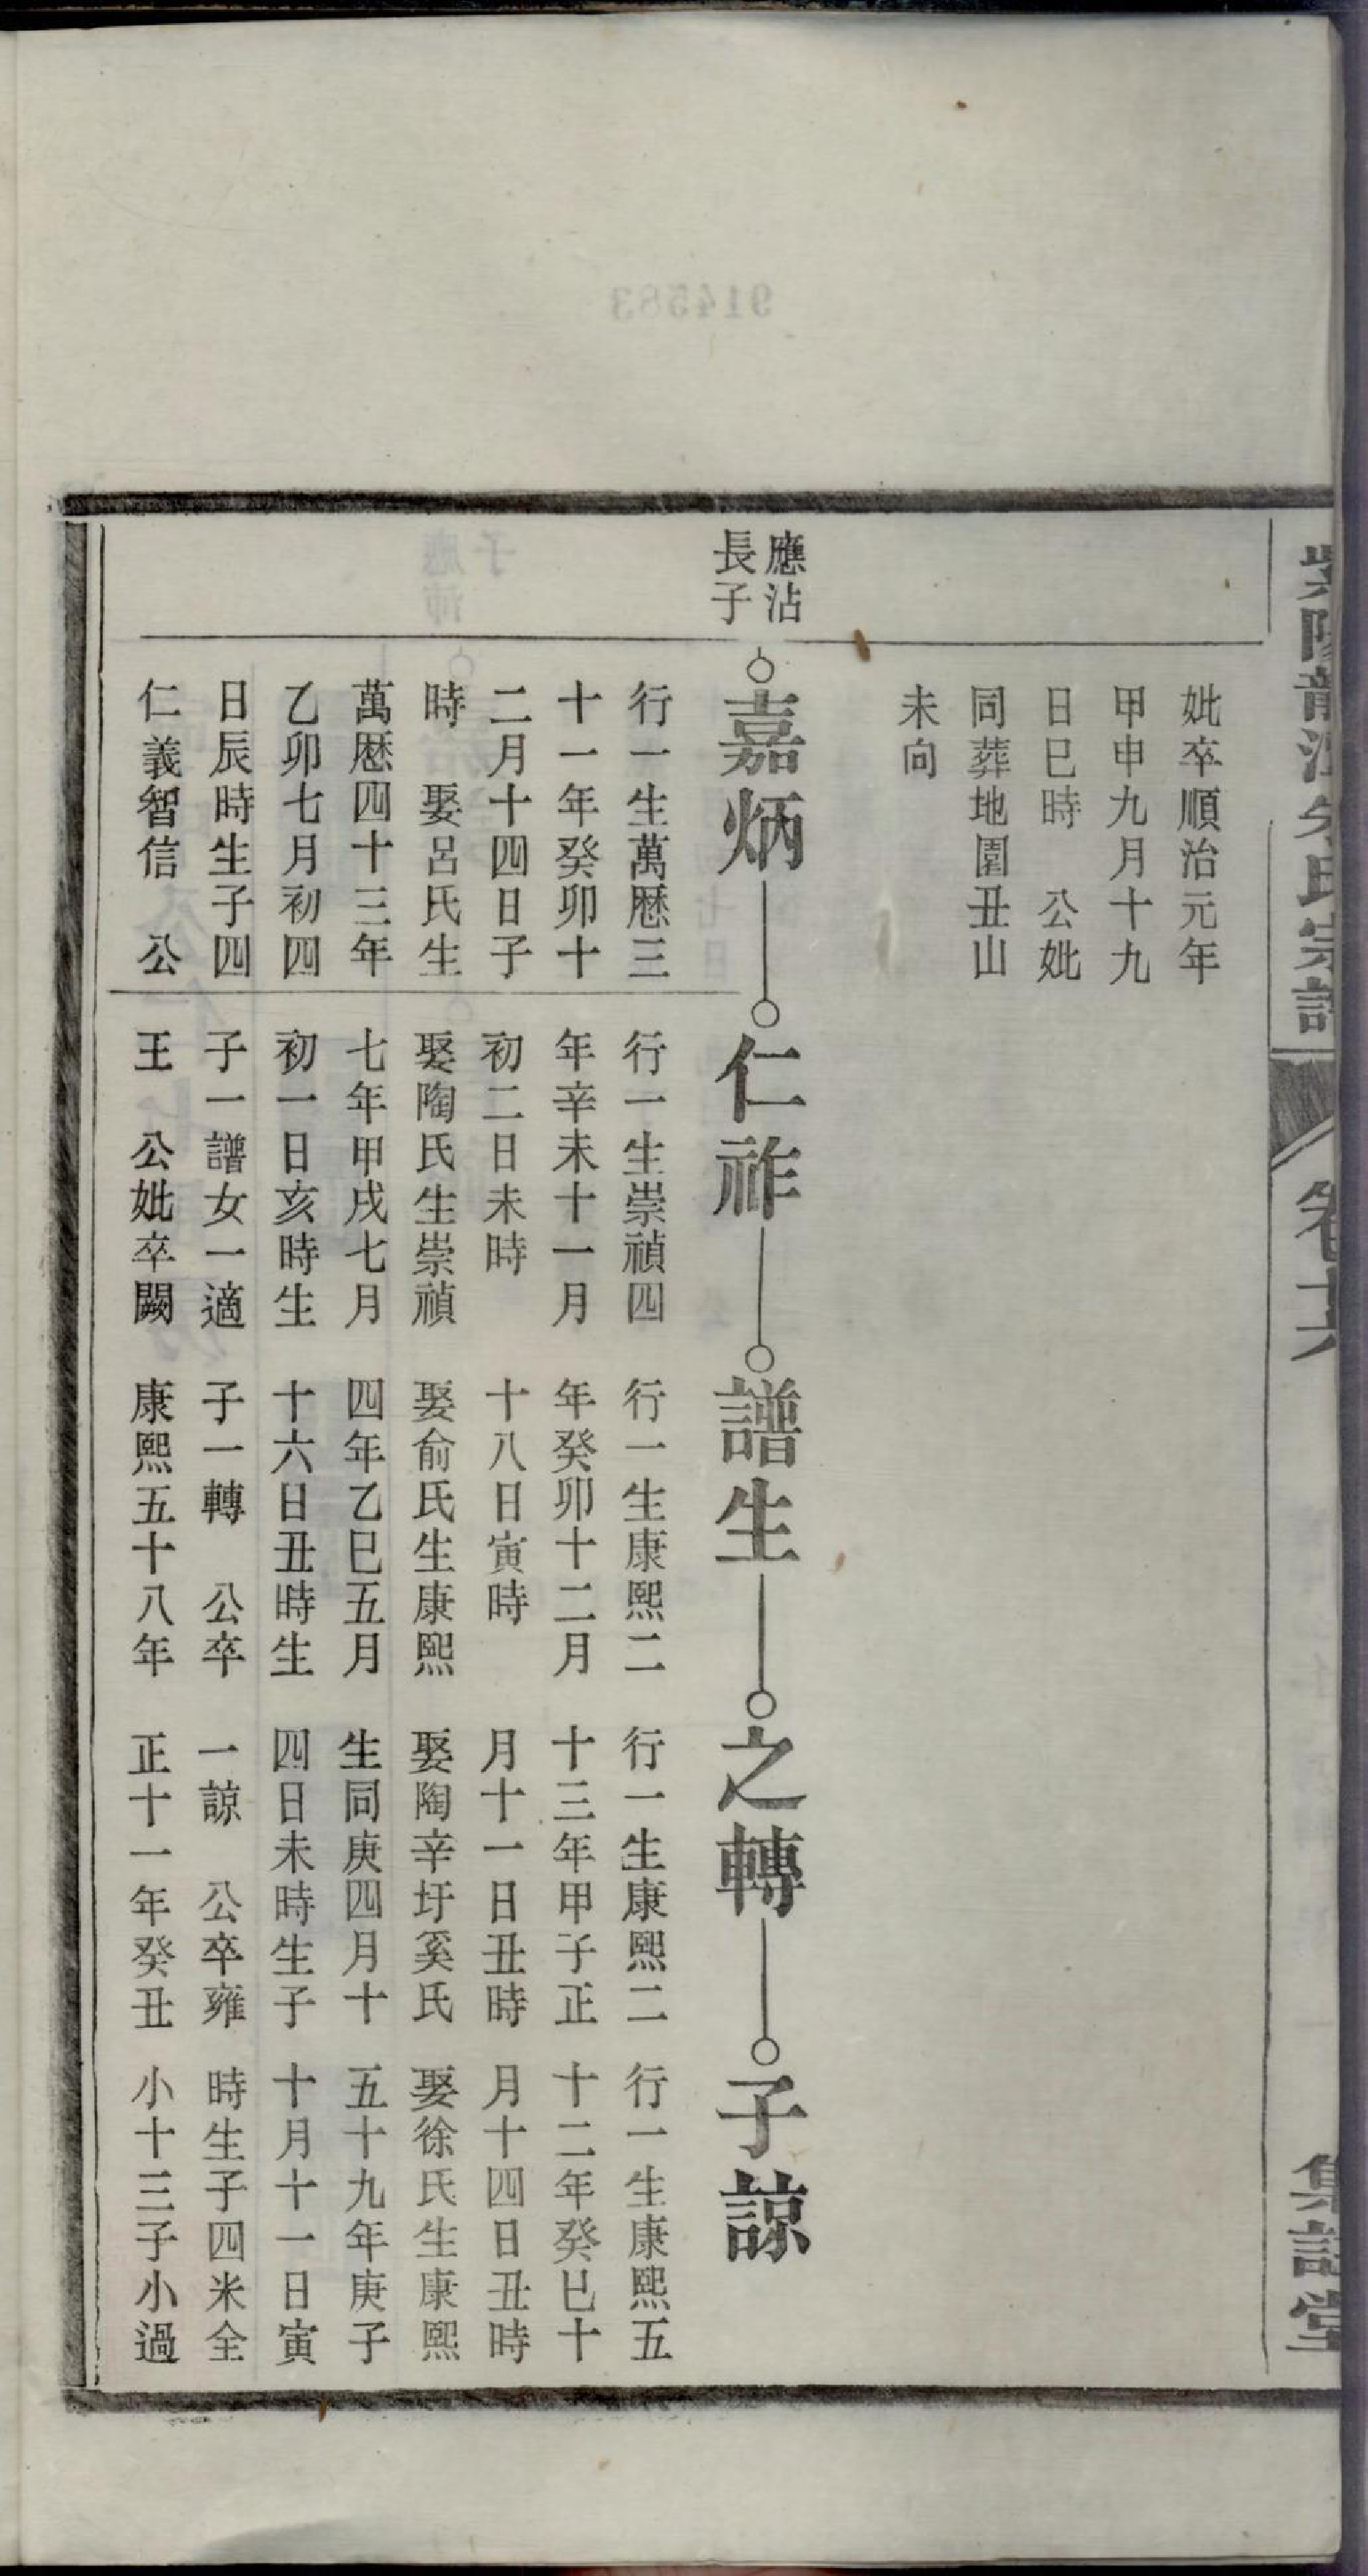 宗譜
集譜堂
妣卒順治元年
甲申九月十九
日巳時　公妣
同葬地園丑山
未向
應沾
長子
嘉炳
行一生萬厯三
十一年癸卯十
二月十四日子
時　娶呂氏生
萬厯四十三年
乙卯七月初四
日辰時生子四
仁義智信　公
仁祚
行一生崇禎四
年辛未十一月
初二日未時
娶陶氏生崇禎
七年甲戌七月
初一日亥時生
子一譜女一適
王　公妣卒闕
譜生
行一生康熙二
年癸卯十二月
十八日寅時
娶俞氏生康熙
四年乙巳五月
十六日丑時生
子一轉　公卒
康熙五十八年
之轉
行一生康熙二
十三年甲子正
月十一日丑時
娶陶辛圩奚氏
生同庚四月十
四日未時生子
一諒　公卒雍
正十一年癸丑
子諒
行一生康熙五
十二年癸巳十
月十四日丑時
娶徐氏生康熙
五十九年庚子
十月十一日寅
時生子四米全
小十三子小過